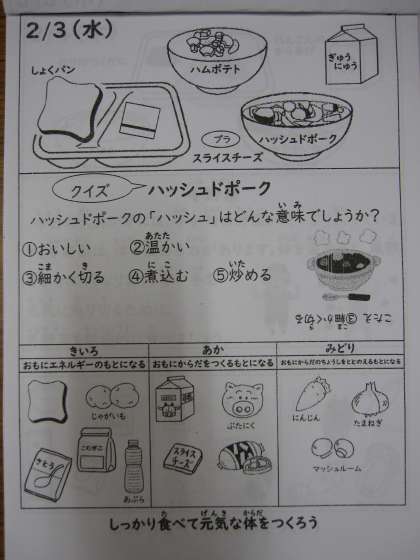 2/3(水)
ハムポテト
ぎゅう
にゅう
しょくパン
プラ
スライスチーズ
ハッシュドポーク
クイズ
ハッシュドポーク
ハッシュドポークの「ハッシュ」はどんな意味でしょうか?
いみ
①おいしい
②温かい
あたた
③細かく切る
こま
き
④煮込む
にこ
⑤炒める
いた
こたえ ③細かく切る
こま
き
きいろ
おもにエネルギーのもとになる
あか
おもにからだをつくるもとになる
みどり
おもにからだのちょうしをととのえるもとになる
じゃがいも
さとう
こむぎこ
あぶら
ぶたにく
スライス
チーズ
にんじん
たまねぎ
マッシュルーム
しっかり食べて元気な体をつくろう
た
げんき
からだ